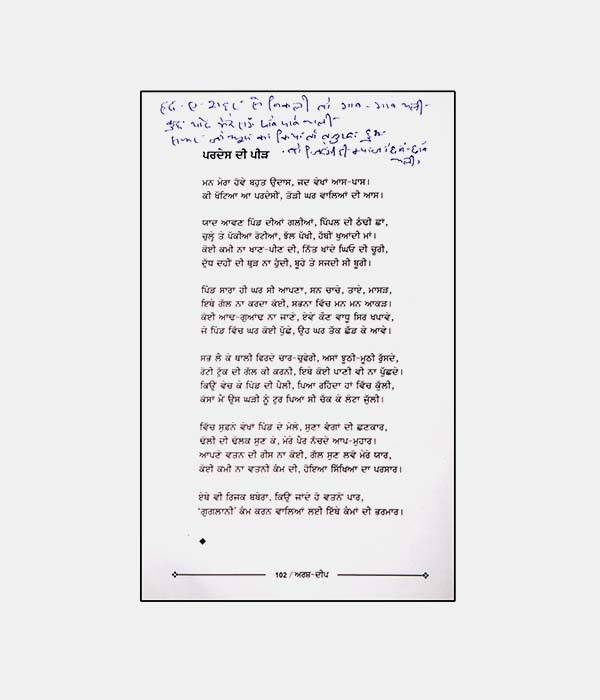 ਪਰਦੇਸ ਦੀ ਪੀੜ
ਮਨ ਮੇਰਾ ਹੋਵੇ ਬਹੁਤ ਉਦਾਸ, ਜਦ ਵੇਖਾਂ ਆਸ-ਪਾਸ।
ਕੀ ਖੱਟਿਆ ਆ ਪਰਦੇਸੀਂ, ਤੋੜੀ ਘਰ ਵਾਲਿਆਂ ਦੀ ਆਸ।
ਯਾਦ ਆਵਣ ਪਿੰਡ ਦੀਆਂ ਗਲੀਆਂ, ਪਿੱਪਲ ਦੀ ਠੰਢੀ ਛਾਂ,
ਚੁਲ੍ਹੇ ਤੇ ਪੱਕੀਆਂ ਰੋਟੀਆਂ, ਝੱਲ ਪੱਖੀ, ਹੱਥੀਂ ਖੁਆਂਦੀ ਮਾਂ।
ਕੋਈ ਕਮੀ ਨਾ ਖਾਣ-ਪੀਣ ਦੀ, ਨਿੱਤ ਖਾਂਦੇ ਘਿਓ ਦੀ ਚੂਰੀ,
ਦੁੱਧ ਦਹੀਂ ਦੀ ਥੁੜ ਨਾ ਹੁੰਦੀ, ਬੂਹੇ ਤੇ ਸਜਦੀ ਸੀ ਬੂਰੀ।
ਪਿੰਡ ਸਾਰਾ ਹੀ ਘਰ ਸੀ ਆਪਣਾ, ਸਨ ਚਾਚੇ, ਤਾਏ, ਮਾਸੜ,
ਇਥੇ ਗੱਲ ਨਾ ਕਰਦਾ ਕੋਈ, ਸਭਨਾ ਵਿੱਚ ਮਨ ਮਨ ਆਕੜ।
ਕੋਈ ਆਂਢ-ਗੁਆਂਢ ਨਾ ਜਾਣੇ, ਏਵੇਂ ਕੌਣ ਵਾਧੂ ਸਿਰ ਖਪਾਵੇ,
ਜੇ ਪਿੰਡ ਵਿੱਚ ਘਰ ਕੋਈ ਪੁੱਛੇ, ਉਹ ਘਰ ਤੱਕ ਛੱਡ ਕੇ ਆਵੇ।
ਸਭ ਲੈ ਕੇ ਥਾਲੀ ਫਿਰਦੇ ਚਾਰ-ਚੁਫੇਰੀ, ਅਸਾਂ ਝੂਠੀ-ਮੂਠੀ ਰੁੱਸਦੇ,
ਰੋਟੀ ਟੁੱਕ ਦੀ ਗੱਲ ਕੀ ਕਰਨੀ, ਇਥੇ ਕੋਈ ਪਾਣੀ ਵੀ ਨਾ ਪੁੱਛਦੇ।
ਕਿਉਂ ਵੇਚ ਕੇ ਪਿੰਡ ਦੀ ਪੈਲੀ, ਪਿਆ ਰਹਿੰਦਾ ਹਾਂ ਵਿੱਚ ਕੁੱਲੀ,
ਕੋਸਾਂ ਮੈਂ ਉਸ ਘੜੀ ਨੂੰ ਟੁਰ ਪਿਆ ਸੀ ਚੱਕ ਕੇ ਲੋਟਾ ਜੁੱਲੀ।
ਵਿੱਚ ਸੁਫਨੇ ਵੇਖਾਂ ਪਿੰਡ ਦੇ ਮੇਲੇ, ਸੁਣਾ ਵੰਗਾਂ ਦੀ ਛਣਕਾਰ,
ਢੋਲੀ ਦੀ ਢੋਲਕ ਸੁਣ ਕੇ, ਮੇਰੇ ਪੈਰ ਨੱਚਦੇ ਆਪ-ਮੁਹਾਰ।
ਆਪਣੇ ਵਤਨ ਦੀ ਰੀਸ ਨਾ ਕੋਈ, ਗੱਲ ਸੁਣ ਲਵੋ ਮੇਰੇ ਯਾਰ,
ਕੋਈ ਕਮੀ ਨਾ ਵਤਨੀਂ ਕੰਮ ਦੀ, ਹੋਇਆ ਸਿੱਖਿਆ ਦਾ ਪਰਸਾਰ।
ਏਥੇ ਵੀ ਰਿਜਕ ਬਥੇਰਾ, ਕਿਉਂ ਜਾਂਦੇ ਹੋ ਵਤਨੋਂ ਪਾਰ,
'ਗੁਗਲਾਨੀ' ਕੰਮ ਕਰਨ ਵਾਲਿਆਂ ਲਈ ਇੱਥੇ ਕੰਮਾਂ ਦੀ ਭਰਮਾਰ।
102 / ਅਰਸ਼-ਦੀਪ